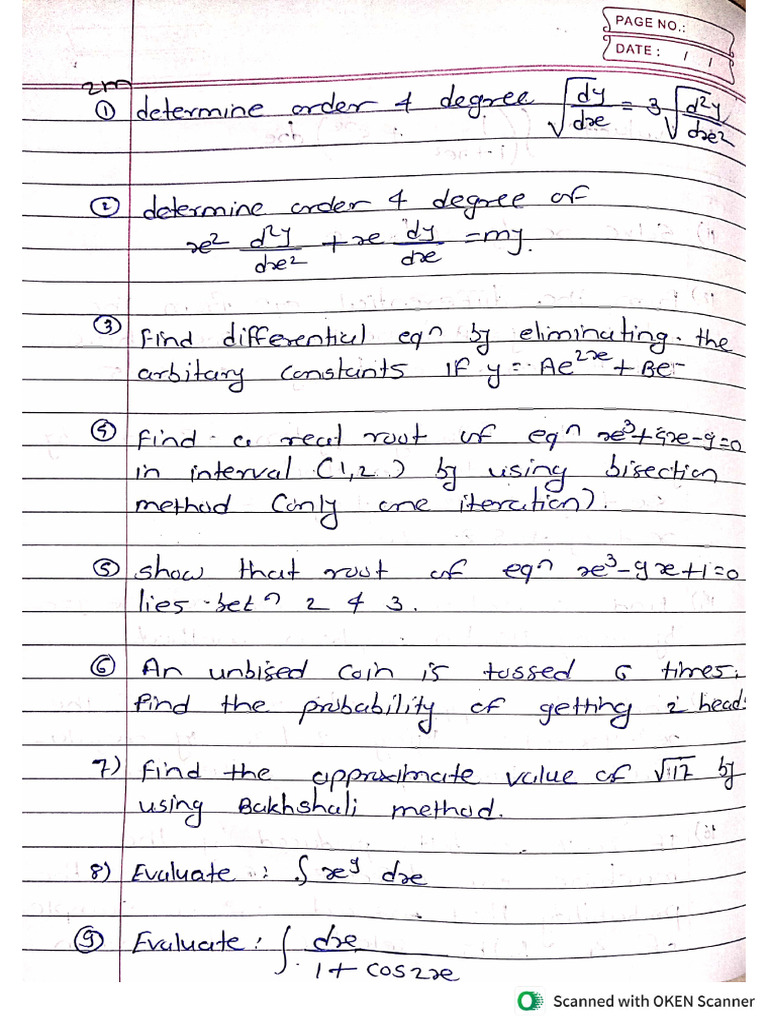 PAGE NO.:
DATE: / /
2m
① determine order & degree √dy/dx = 3√d²y/dx²
② determine order & degree of
x² d²y/dx² + x dy/dx = my.
③ Find differential eqn by eliminating the
arbitary constants if y = Ae^2x + Be
④ Find a real root of eqn x³+4x-9=0
in interval (1,2) by using bisection
method (only one iteration).
⑤ show that root of eqn x³-9x+1=0
lies betn 2 & 3.
⑥ An unbised coin is tossed 6 times.
find the probability of getting 2 head
7) Find the approximate value of √17 by
using Bakhshali method.
8) Evaluate : ∫x⁹ dx
⑨ Evaluate : ∫ dx/1+cos2x
Scanned with OKEN Scanner